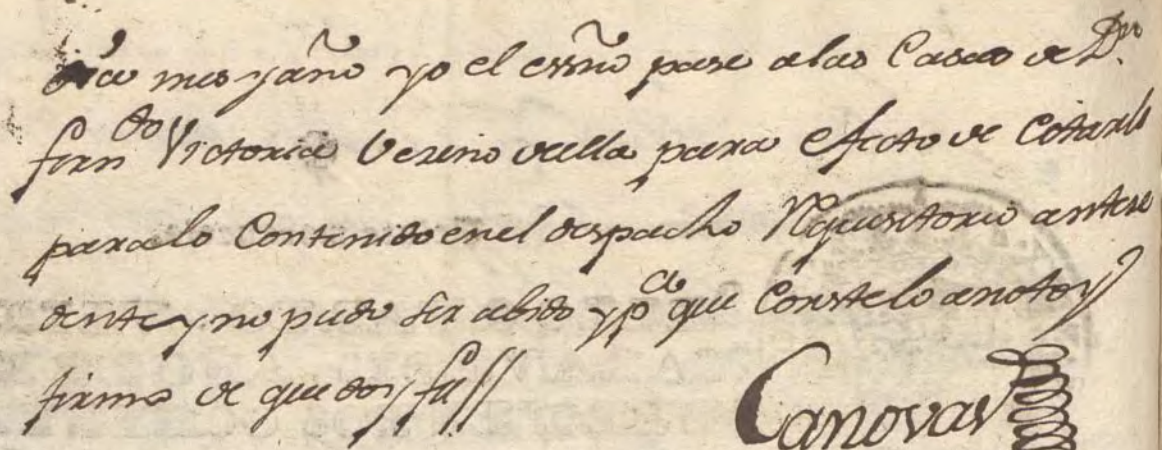 dia mes y año yo el essno pase a las Casas de Dn
ferndo Victoria Vezino de ella para efecto de Citarle
para lo Contenido en el despacho Requisitorio antese
dente y no pudo ser abido y pa que Conste lo anoto y
firmo de que doy fee//
Canovas